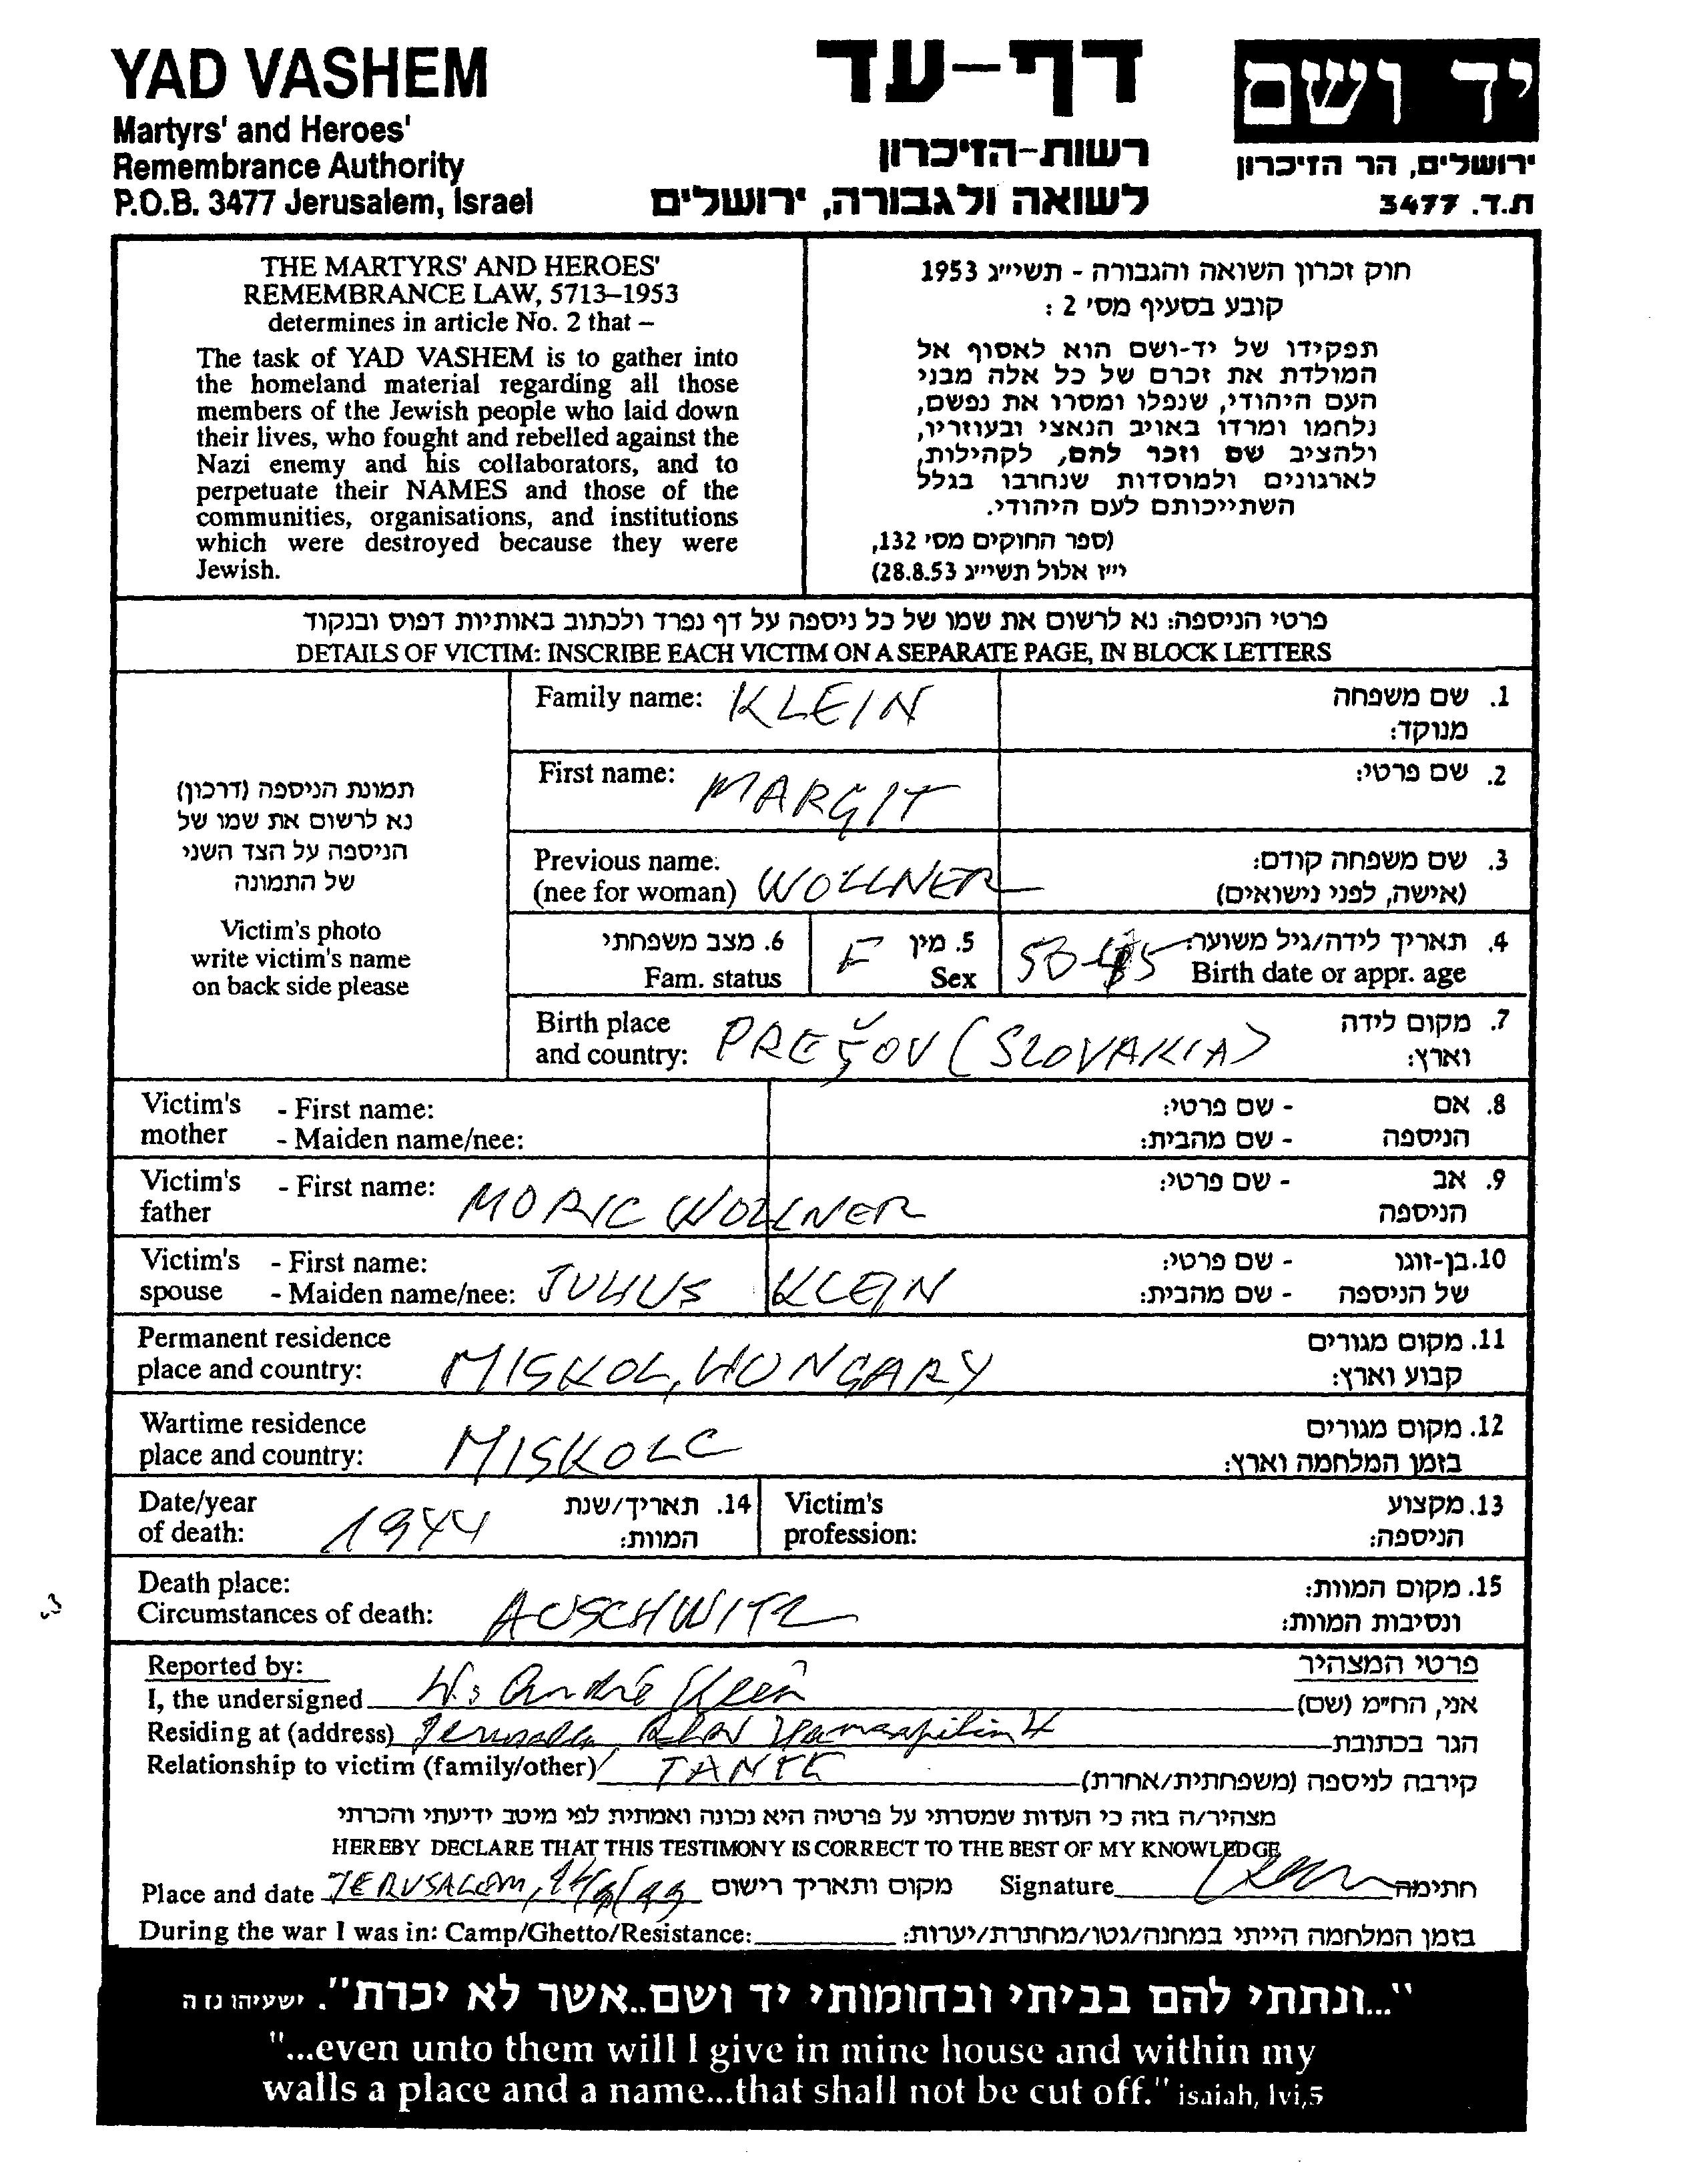 YAD VASHEM
Martyrs' and Heroes'
Remembrance Authority
P.O.B. 3477 Jerusalem, Israel
דף-עד
רשות-הזיכרון
לשואה ולגבורה, ירושלים
יד ושם
ירושלים, הר הזיכרון
ת.ד. 3477
THE MARTYRS' AND HEROES'
REMEMBRANCE LAW, 5713–1953
determines in article No. 2 that –
The task of YAD VASHEM is to gather into
the homeland material regarding all those
members of the Jewish people who laid down
their lives, who fought and rebelled against the
Nazi enemy and his collaborators, and to
perpetuate their NAMES and those of the
communities, organisations, and institutions
which were destroyed because they were
Jewish.
חוק זכרון השואה והגבורה - תשי״ג 1953
קובע בסעיף מס' 2 :
תפקידו של יד-ושם הוא לאסוף אל
המולדת את זכרם של כל אלה מבני
העם היהודי, שנפלו ומסרו את נפשם,
נלחמו ומרדו באויב הנאצי ובעוזריו,
ולהציב שם וזכר להם, לקהילות,
לארגונים ולמוסדות שנחרבו בגלל
השתייכותם לעם היהודי.
(ספר החוקים מס' 132,
י״ז אלול תשי״ג 28.8.53)
פרטי הניספה: נא לרשום את שמו של כל ניספה על דף נפרד ולכתוב באותיות דפוס ובנקוד
DETAILS OF VICTIM: INSCRIBE EACH VICTIM ON A SEPARATE PAGE, IN BLOCK LETTERS
תמונת הניספה (דרכון)
נא לרשום את שמו של
הניספה על הצד השני
של התמונה
Victim's photo
write victim's name
on back side please
Family name: KLEIN
1. שם משפחה
מנוקד:
First name: MARGIT
2. שם פרטי:
Previous name:
(nee for woman) WOLLNER
3. שם משפחה קודם:
(אישה, לפני נישואים)
6. מצב משפחתי
Fam. status
5. מין F
Sex
4. תאריך לידה/גיל משוער:
Birth date or appr. age
Birth place
and country: PREŠOV (SLOVAKIA)
7. מקום לידה
וארץ:
Victim's mother - First name:
- Maiden name/nee:
8. אם הניספה - שם פרטי:
- שם מהבית:
Victim's father - First name: MORIC WOLLNER
9. אב הניספה - שם פרטי:
Victim's spouse - First name:
- Maiden name/nee: JULIUS KLEIN
10. בן-זוגו של הניספה - שם פרטי:
- שם מהבית:
Permanent residence
place and country: MISKOL, HUNGARY
11. מקום מגורים
קבוע וארץ:
Wartime residence
place and country: MISKOLC
12. מקום מגורים
בזמן המלחמה וארץ:
Date/year
of death: 1944
14. תאריך/שנת
המוות:
Victim's
profession:
13. מקצוע
הניספה:
Death place:
Circumstances of death: AUSCHWITZ
15. מקום המוות:
ונסיבות המוות:
Reported by:
פרטי המצהיר
I, the undersigned André Klein אני, הח״מ (שם)
Residing at (address) הגר בכתובת
Relationship to victim (family/other) TANTE קירבה לניספה (משפחתית/אחרת)
מצהיר/ה בזה כי העדות שמסרתי על פרטיה היא נכונה ואמתית לפי מיטב ידיעתי והכרתי
HEREBY DECLARE THAT THIS TESTIMONY IS CORRECT TO THE BEST OF MY KNOWLEDGE
Place and date JERUSALEM, מקום ותאריך רישום Signature חתימה
During the war I was in: Camp/Ghetto/Resistance: בזמן המלחמה הייתי במחנה/גטו/מחתרת/יערות:
"...ונתתי להם בביתי ובחומותי יד ושם..אשר לא יכרת". ישעיהו נו ה
"...even unto them will I give in mine house and within my
walls a place and a name...that shall not be cut off." isaiah, lvi,5